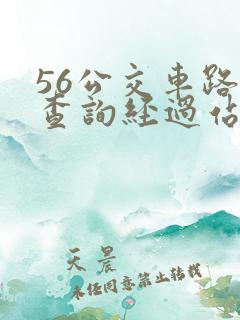 56公交車路
查詢經過佔
天晨
未经同意禁止转载